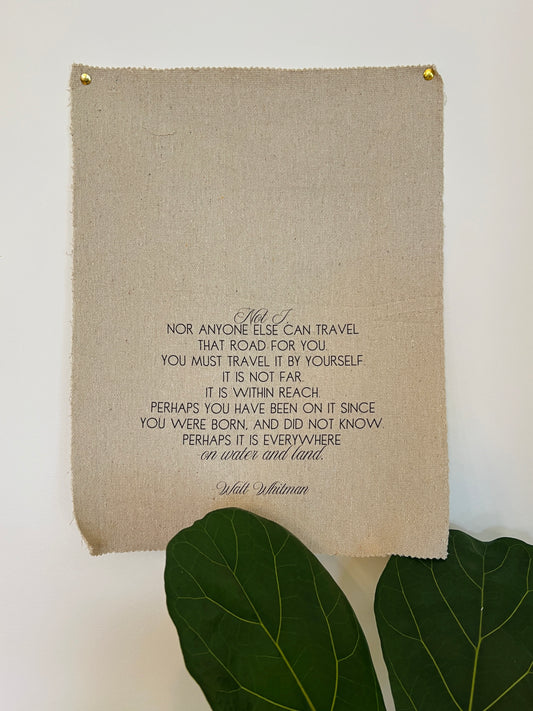 Not I,
NOR ANYONE ELSE CAN TRAVEL
THAT ROAD FOR YOU.
YOU MUST TRAVEL IT BY YOURSELF.
IT IS NOT FAR.
IT IS WITHIN REACH.
PERHAPS YOU HAVE BEEN ON IT SINCE
YOU WERE BORN, AND DID NOT KNOW.
PERHAPS IT IS EVERYWHERE
on water and land.
Walt Whitman